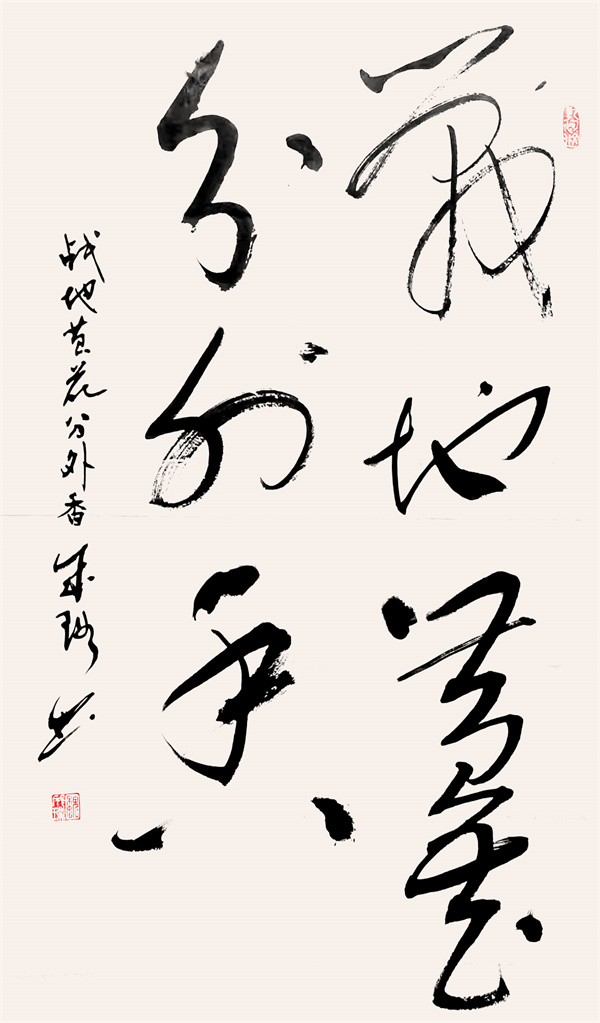 戰地黄花
分外香
战地黄花分外香 成 书